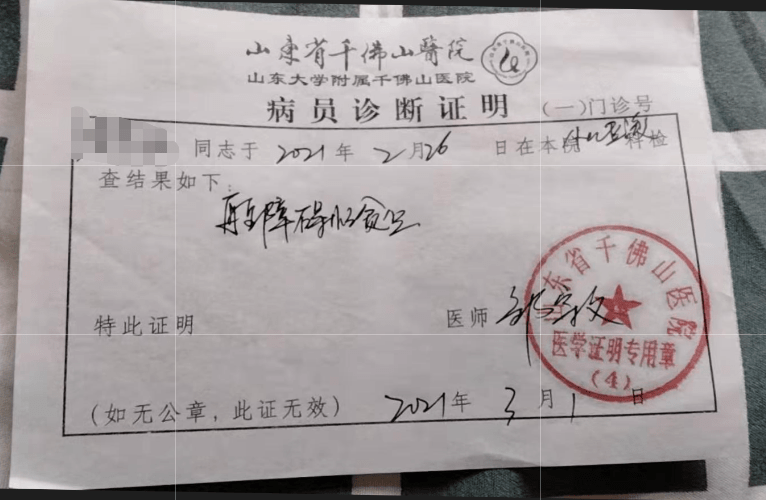 山东省千佛山醫院
山东大学附属千佛山医院
病员诊断证明
(一)门诊号
同志于 2021 年 2 月 26 日在本院 小儿血液 科检
查结果如下:
再生障碍性贫血
特此证明
医师
山东省千佛山医院
医学证明专用章
(4)
(如无公章,此证无效) 2021 年 3 月 1 日